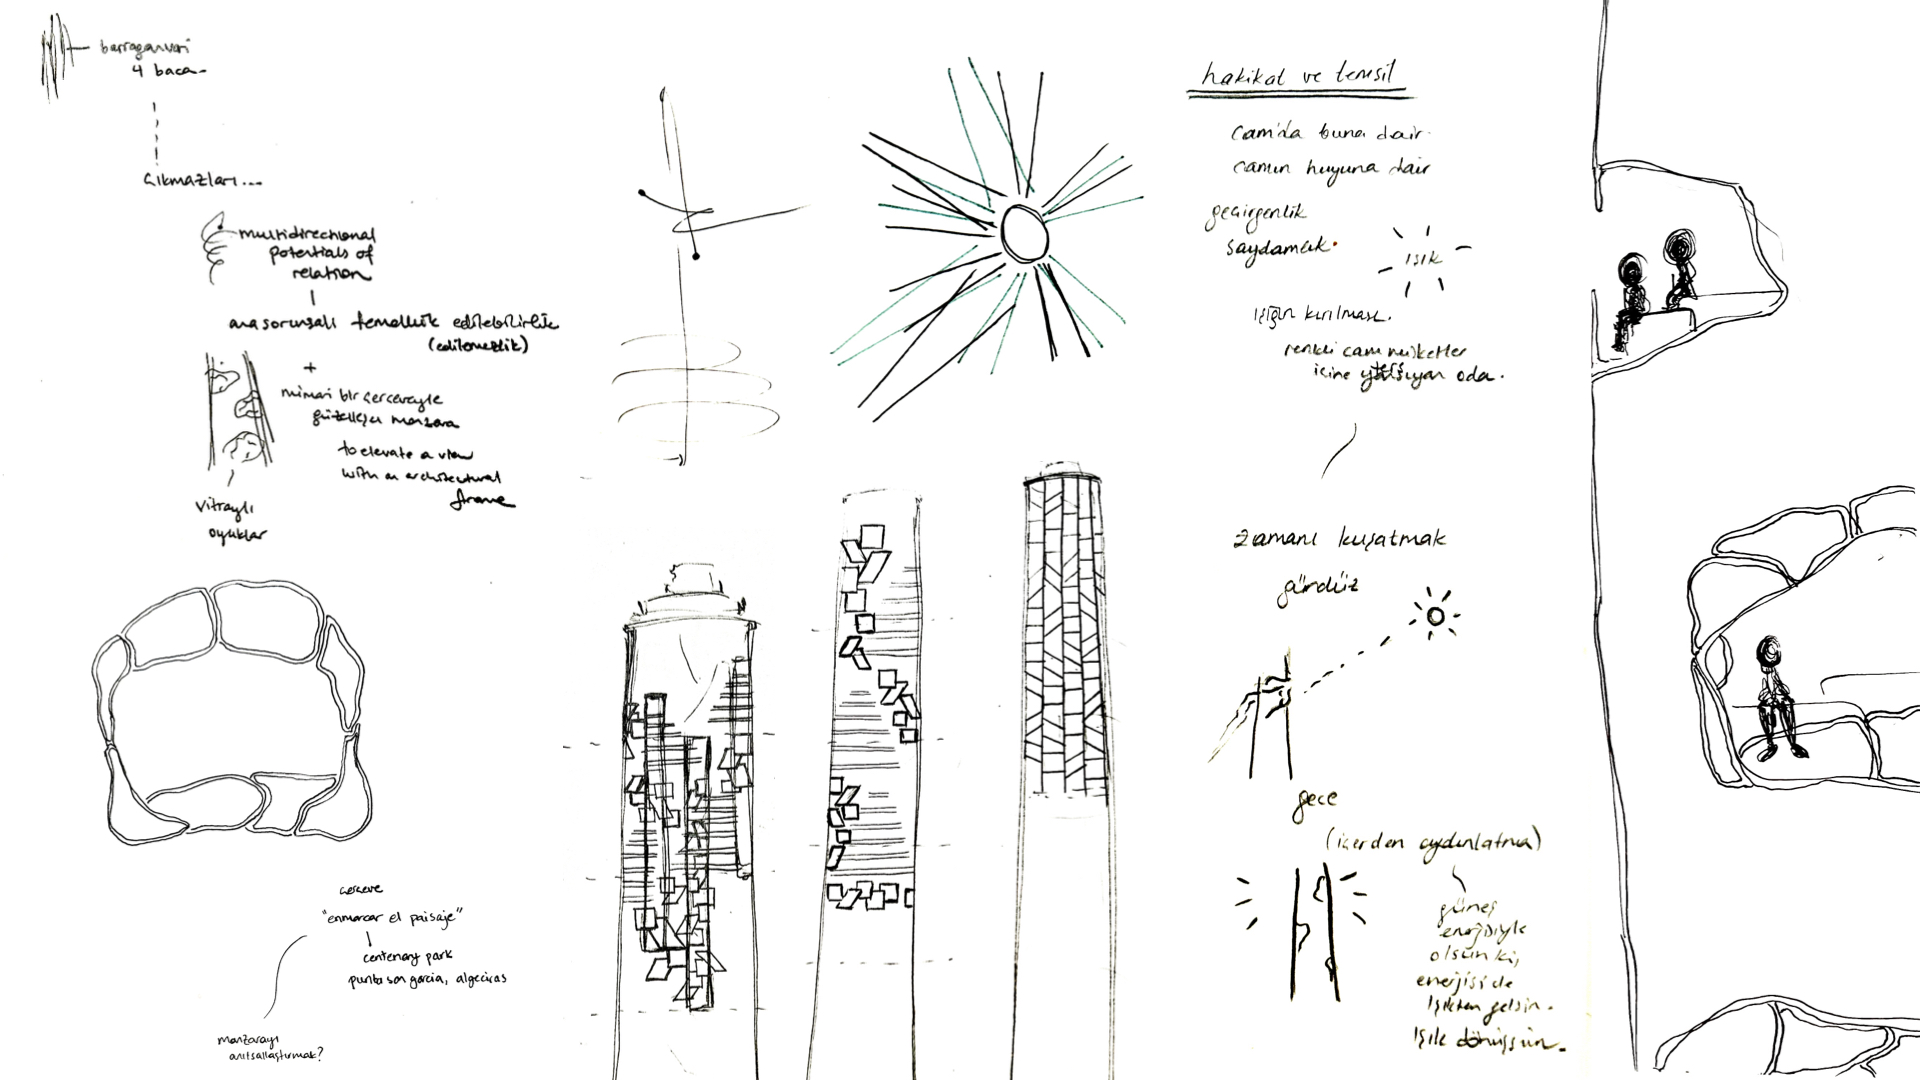 barraganvari
4 baca.
çıkmazları...
multidirectional
potentials of
relation
ana sorunsalı temellük edilebilirlik
(edilemezlik)
+
mimari bir çerçeveyle
güzelleşen manzara
to elevate a view
with an architectural
frame
vitraylı
oyuklar
çerçeve
"enmarcar el paisaje"
centenary park
punta san garcia, algeciras
manzarayı
anıtsallaştırmak?
hakikat ve temsil
cam'da buna dair.
camın huyuna dair
geçirgenlik
saydamlık.
ışık
ışığın kırılması.
renkli cam
içine yansıyan oda.
zamanı kuşatmak
gündüz
gece
(içerden aydınlatma)
güneş
enerjisiyle
olsun ki,
enerjisi de
ışıktan gelsin.
ışık dönüşsün.